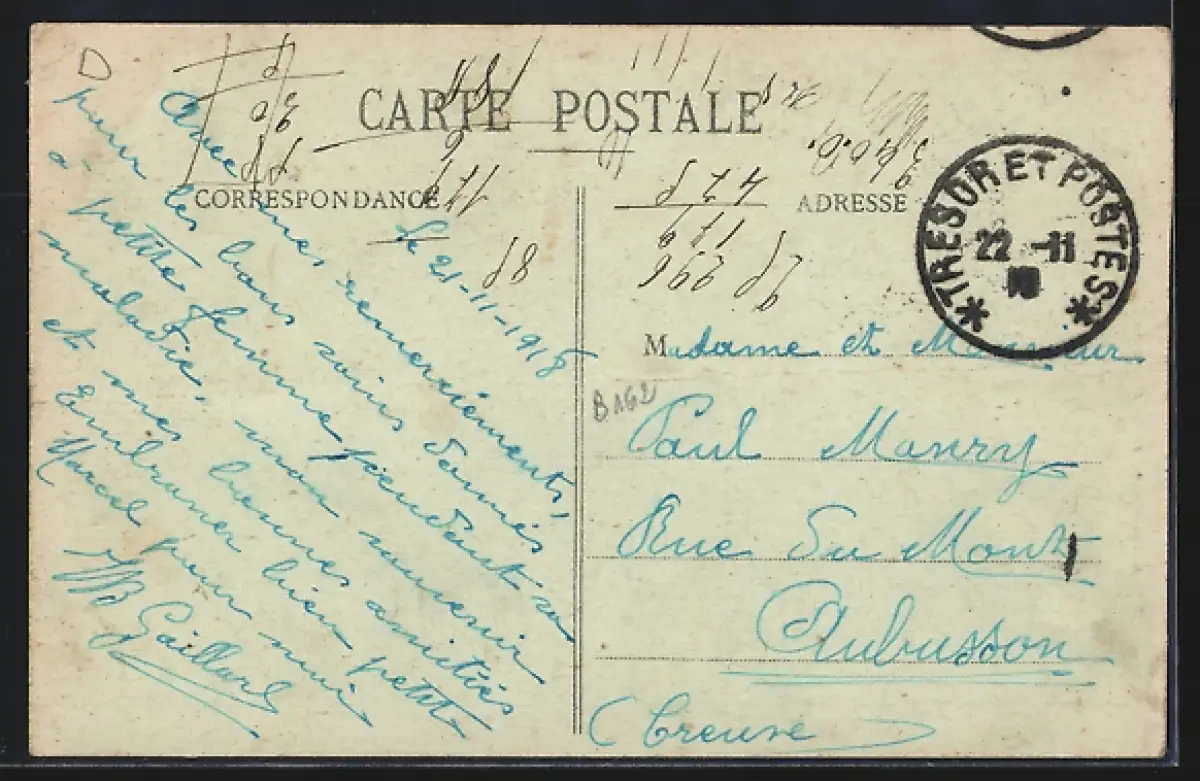 CARTE POSTALE
CORRESPONDANCE
ADRESSE
Le 21-11-1918
Avec mes remerciements,
pour les bons soins donnés
à petite femme pendant sa
maladie, mon souvenir
et mes bonnes amitiés
Embrasser bien petit
Marcel pour moi
Gaillard
TRESOR ET POSTES
22 -11
18
Madame et Monsieur
Paul Manry
Rue du Mont
Aubusson
(Creuse)
B162